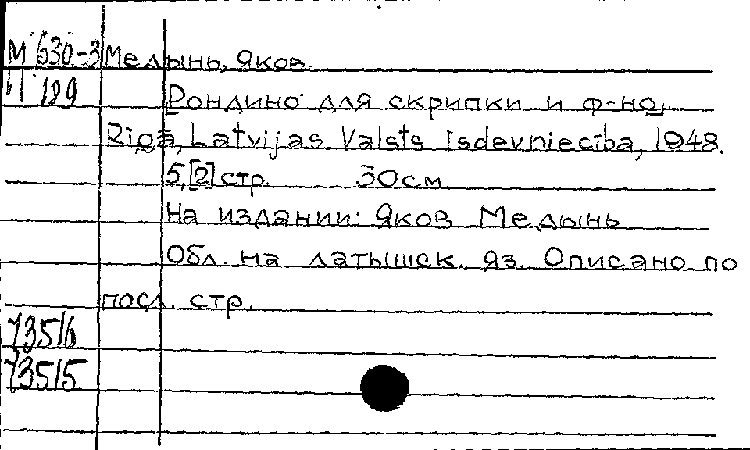 М 630-3 Медынь, Яков.
Рондино для скрипки и ф-но.
Rīgā, Latvijas Valsts Isdevniecība, 1948.
5,[2] стр. 30см
На издании: Яков Медынь
Обл. на латышск. яз. Описано по
посл. стр.
73516
73515